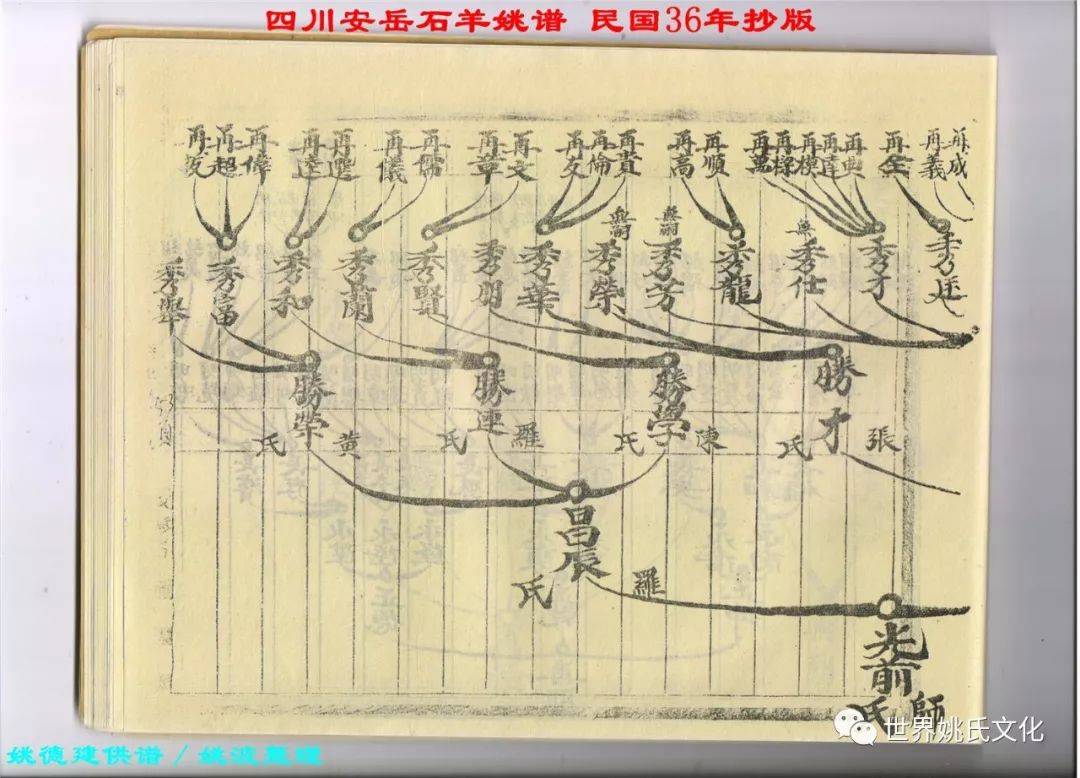 四川安岳石羊姚谱 民国36年抄版
再成
再義
再金
再典
再達
再模
再樑
再萬
再順
再高
再貴
再倫
再友
再文
再章
再儒
再儀
再選
再達
再偉
再超
秀廷
秀才
無
秀仕
秀龍
無嗣
秀芳
無嗣
秀榮
秀華
秀朋
秀賢
秀蘭
秀和
秀富
秀舉
勝才
張氏
勝學
陳氏
勝連
羅氏
勝榮
黃氏
昌辰
羅氏
光前
師氏
世界姚氏文化
姚德建供谱/姚波整理